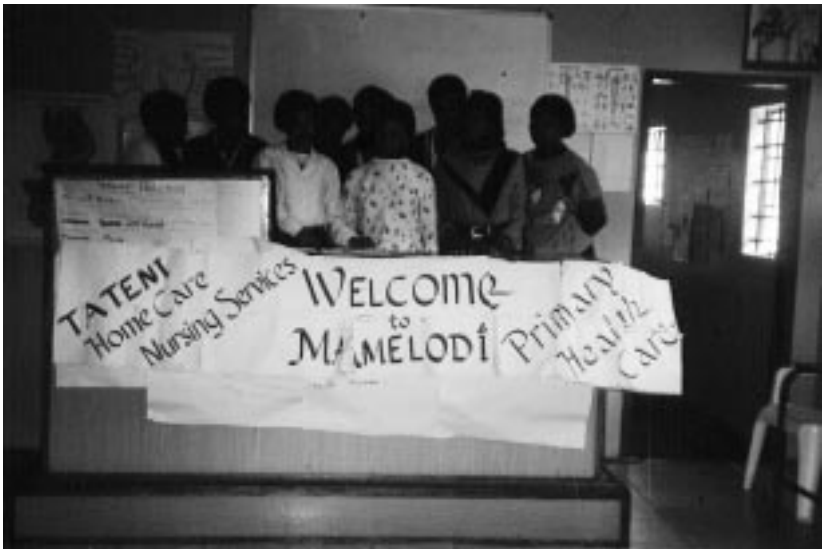 TATENI
Home Care
Nursing Services
WELCOME
to
MAMELODI
Primary
Health
Care